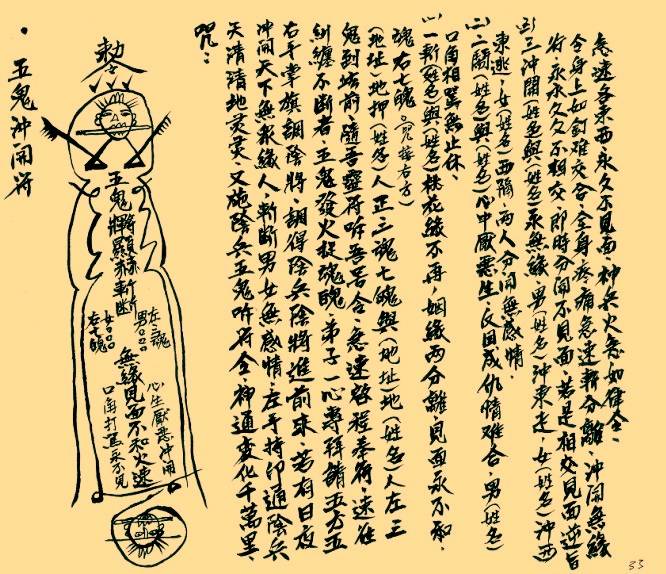 五鬼沖開符
勅
五鬼將顯赫斬断
左三魂
男○○○
女○○○
右七魄
無緣見面不和火速
心生厭惡沖開
口角打罵永不見
咒：
天清清地灵灵、又施陰兵五鬼吽符令、神通变化千萬里、
沖開天下無緣人斬斷男女無感情、左手持印通陰兵
右手掌旗調陰將、調得陰兵陰將進前來、若有日夜
糾纏不断者、五鬼發火捉魂魄、弟子一心專拜請五方五
鬼到坛前、隨吾靈符吽吾召合、急速啓程奉符、速往
(地址)地押(姓名)人正三魂七魄與(地址)地(姓名)人左三
魂右七魄。
(一)一斬(姓名)與(姓名)桃花緣不再、姻緣两分離、見面永不和、
口角相罵無止休、
(二)二鬪(姓名)與(姓名)心中厭惡生反目成仇情难合、男(姓名)
東逃、女(姓名)西隔、两人分開無感情、
(三)三沖開(姓名與姓名)永無緣、男(姓名)沖東走、女(姓名)沖西
符、永永久久不相交、即時分開不見面、若是相交見面逆旨
全身上如釘难交合、全身疼痛急速斬分離、沖開無緣
急速各東西永久不見面、神兵火急如律令、
33